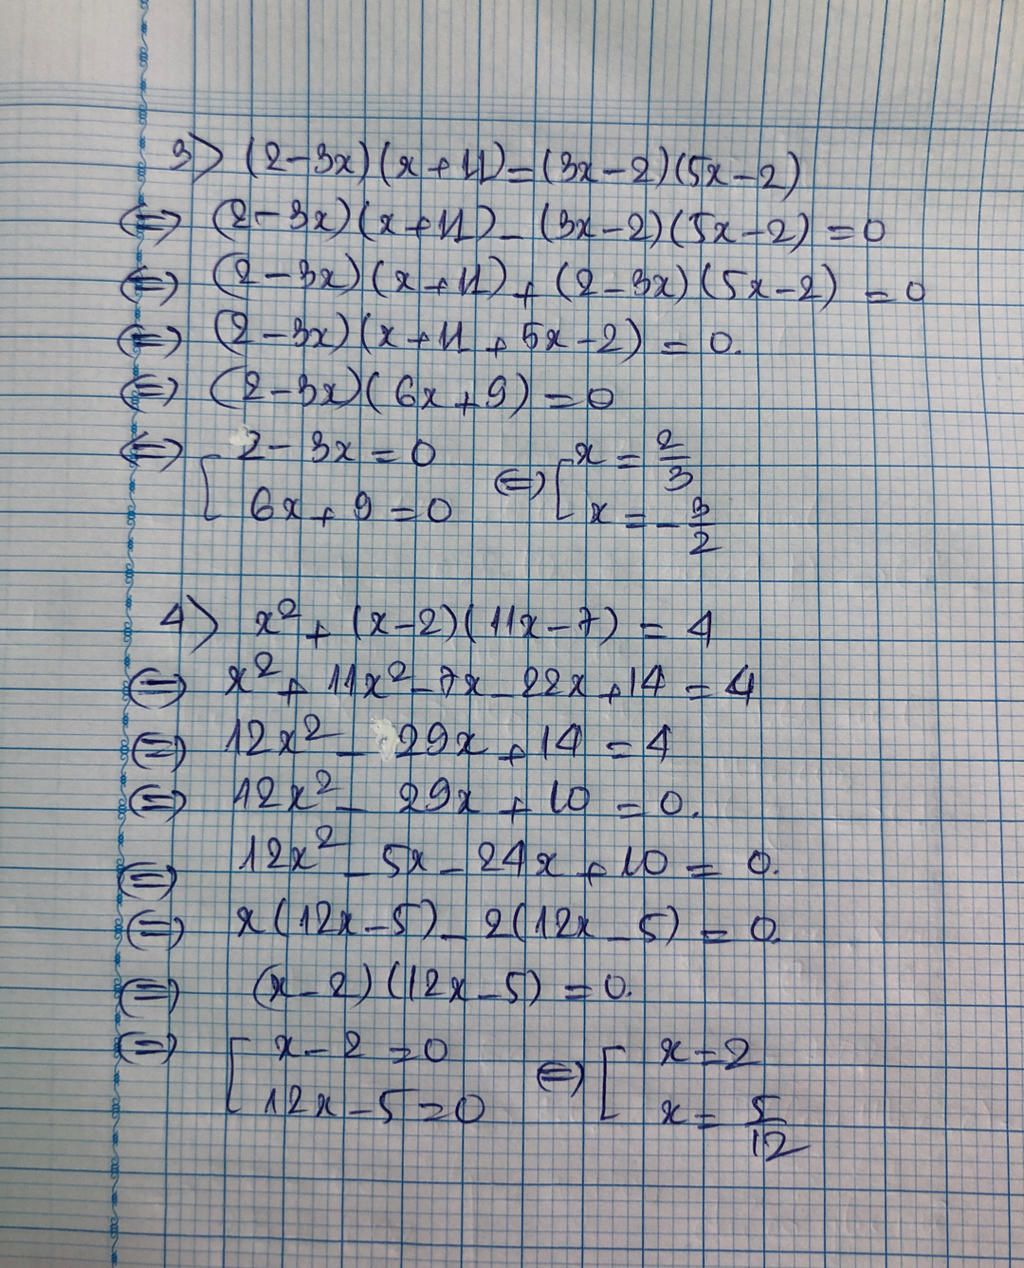 3> (2-3x)(x+11)=(3x-2)(5x-2)
⇔ (2-3x)(x+11)-(3x-2)(5x-2)=0
⇔ (2-3x)(x+11)+(2-3x)(5x-2)=0
⇔ (2-3x)(x+11+5x-2)=0.
⇔ (2-3x)(6x+9)=0
⇔ [ 2-3x=0 ⇔ [ x=2/3
6x+9=0 x=-3/2
4> x²+(x-2)(11x-7)=4
⇔ x²+11x²-7x-22x+14=4
⇔ 12x²-29x+14=4
⇔ 12x²-29x+10=0.
⇔ 12x²-5x-24x+10=0.
⇔ x(12x-5)-2(12x-5)=0.
⇔ (x-2)(12x-5)=0.
⇔ [ x-2=0 ⇔ [ x=2
12x-5=0 x=5/12